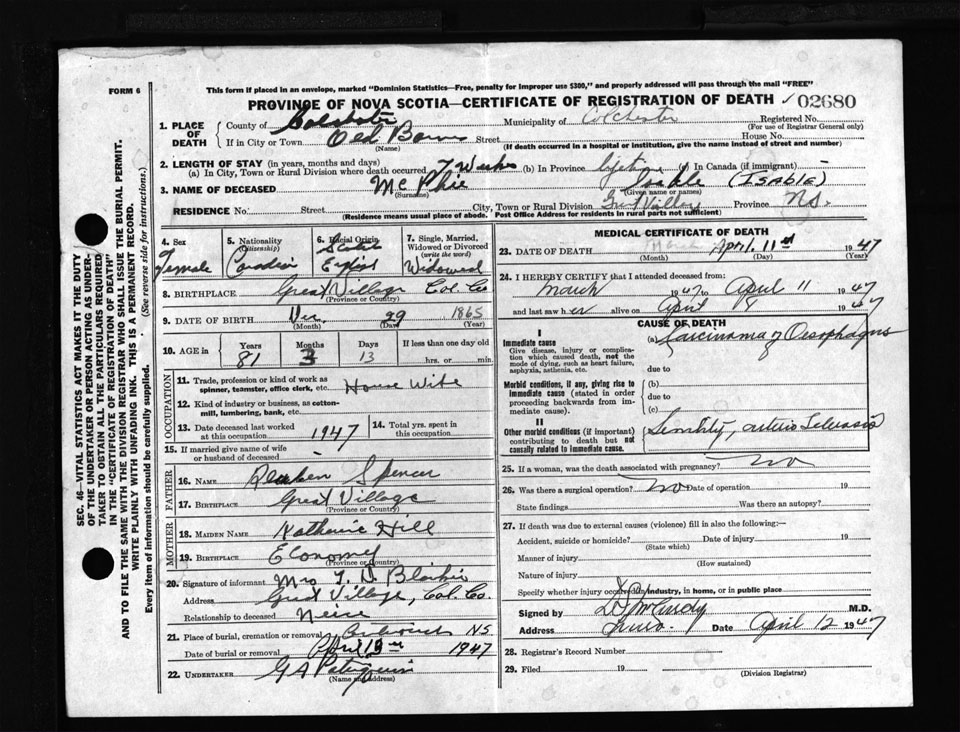 FORM 6
This form if placed in an envelope, marked "Dominion Statistics—Free, penalty for improper use $300," and properly addressed will pass through the mail "FREE"
PROVINCE OF NOVA SCOTIA—CERTIFICATE OF REGISTRATION OF DEATH 02680
1. PLACE OF DEATH
County of Colchester Municipality of Colchester Registered No.
(For use of Registrar General only)
If in City or Town Old Barns Street House No.
(Name) (If death occurred in a hospital or institution, give the name instead of street and number)
2. LENGTH OF STAY (in years, months and days)
(a) In City, Town or Rural Division where death occurred 7 Weeks (b) In Province lifetime (c) In Canada (if immigrant)
3. NAME OF DECEASED Mc Phie Isable (ISABLE)
(Surname) (Given name or names)
RESIDENCE No. Street City, Town or Rural Division Gret Village Province N.S.
(Residence means usual place of abode. Post Office Address for residents in rural parts not sufficient)
4. Sex
Female
5. Nationality
(Citizenship)
Canadian
6. Racial Origin
Scotch
English
7. Single, Married, Widowed or Divorced
(write the word)
Widowed
8. BIRTHPLACE Great Village Col. Co
(Province or Country)
9. DATE OF BIRTH Dec 29 1865
(Month) (Day) (Year)
10. AGE in Years Months Days If less than one day old
81 3 13 hrs. or min.
OCCUPATION
11. Trade, profession or kind of work as spinner, teamster, office clerk, etc. House Wife
12. Kind of industry or business, as cotton-mill, lumbering, bank, etc.
13. Date deceased last worked at this occupation 1947
14. Total yrs. spent in this occupation
15. If married give name of wife or husband of deceased
FATHER
16. NAME Reuben Spencer
17. BIRTHPLACE Great Village
MOTHER
18. MAIDEN NAME Katherine Hill
19. BIRTHPLACE Economy
(Province or Country)
20. Signature of informant Mrs T. D. Blaikie
Address Great Village, Col. Co.
Relationship to deceased Neice
21. Place of burial, cremation or removal N.S
Date of burial or removal April 13th 1947
22. UNDERTAKER G A
(Name and address)
MEDICAL CERTIFICATE OF DEATH
23. DATE OF DEATH April 11th 1947
(Month) (Day) (Year)
24. I HEREBY CERTIFY that I attended deceased from:
March 1947 to April 11 1947
and last saw her alive on April 8 1947
CAUSE OF DEATH
I
Immediate cause
Give disease, injury or complication which caused death, not the mode of dying, such as heart failure, asphyxia, asthenia, etc.
(a) Carcinoma of Oesophagus
due to
Morbid conditions, if any, giving rise to immediate cause (stated in order proceeding backwards from immediate cause).
(b)
due to
(c)
II
Other morbid conditions (if important) contributing to death but not causally related to immediate cause.
Senility, arterio Sclerosis
25. If a woman, was the death associated with pregnancy? no
26. Was there a surgical operation? no Date of operation 19
State findings Was there an autopsy?
27. If death was due to external causes (violence) fill in also the following:—
Accident, suicide or homicide? Date of injury 19
(State which)
Manner of injury
(How sustained)
Nature of injury
Specify whether injury occurred in industry, in home, or in public place
Signed by M.D.
Address Truro. Date April 12 1947
28. Registrar's Record Number
29. Filed 19
(Division Registrar)
SEC. 46—VITAL STATISTICS ACT MAKES IT THE DUTY
OF THE UNDERTAKER OR PERSON ACTING AS UNDER-
TAKER TO OBTAIN ALL THE PARTICULARS REQUIRED
IN THE "CERTIFICATE OF REGISTRATION OF DEATH"
AND TO FILE THE SAME WITH THE DIVISION REGISTRAR WHO SHALL ISSUE THE BURIAL PERMIT.
WRITE PLAINLY WITH UNFADING INK. THIS IS A PERMANENT RECORD.
Every item of information should be carefully supplied. (See reverse side for instructions.)